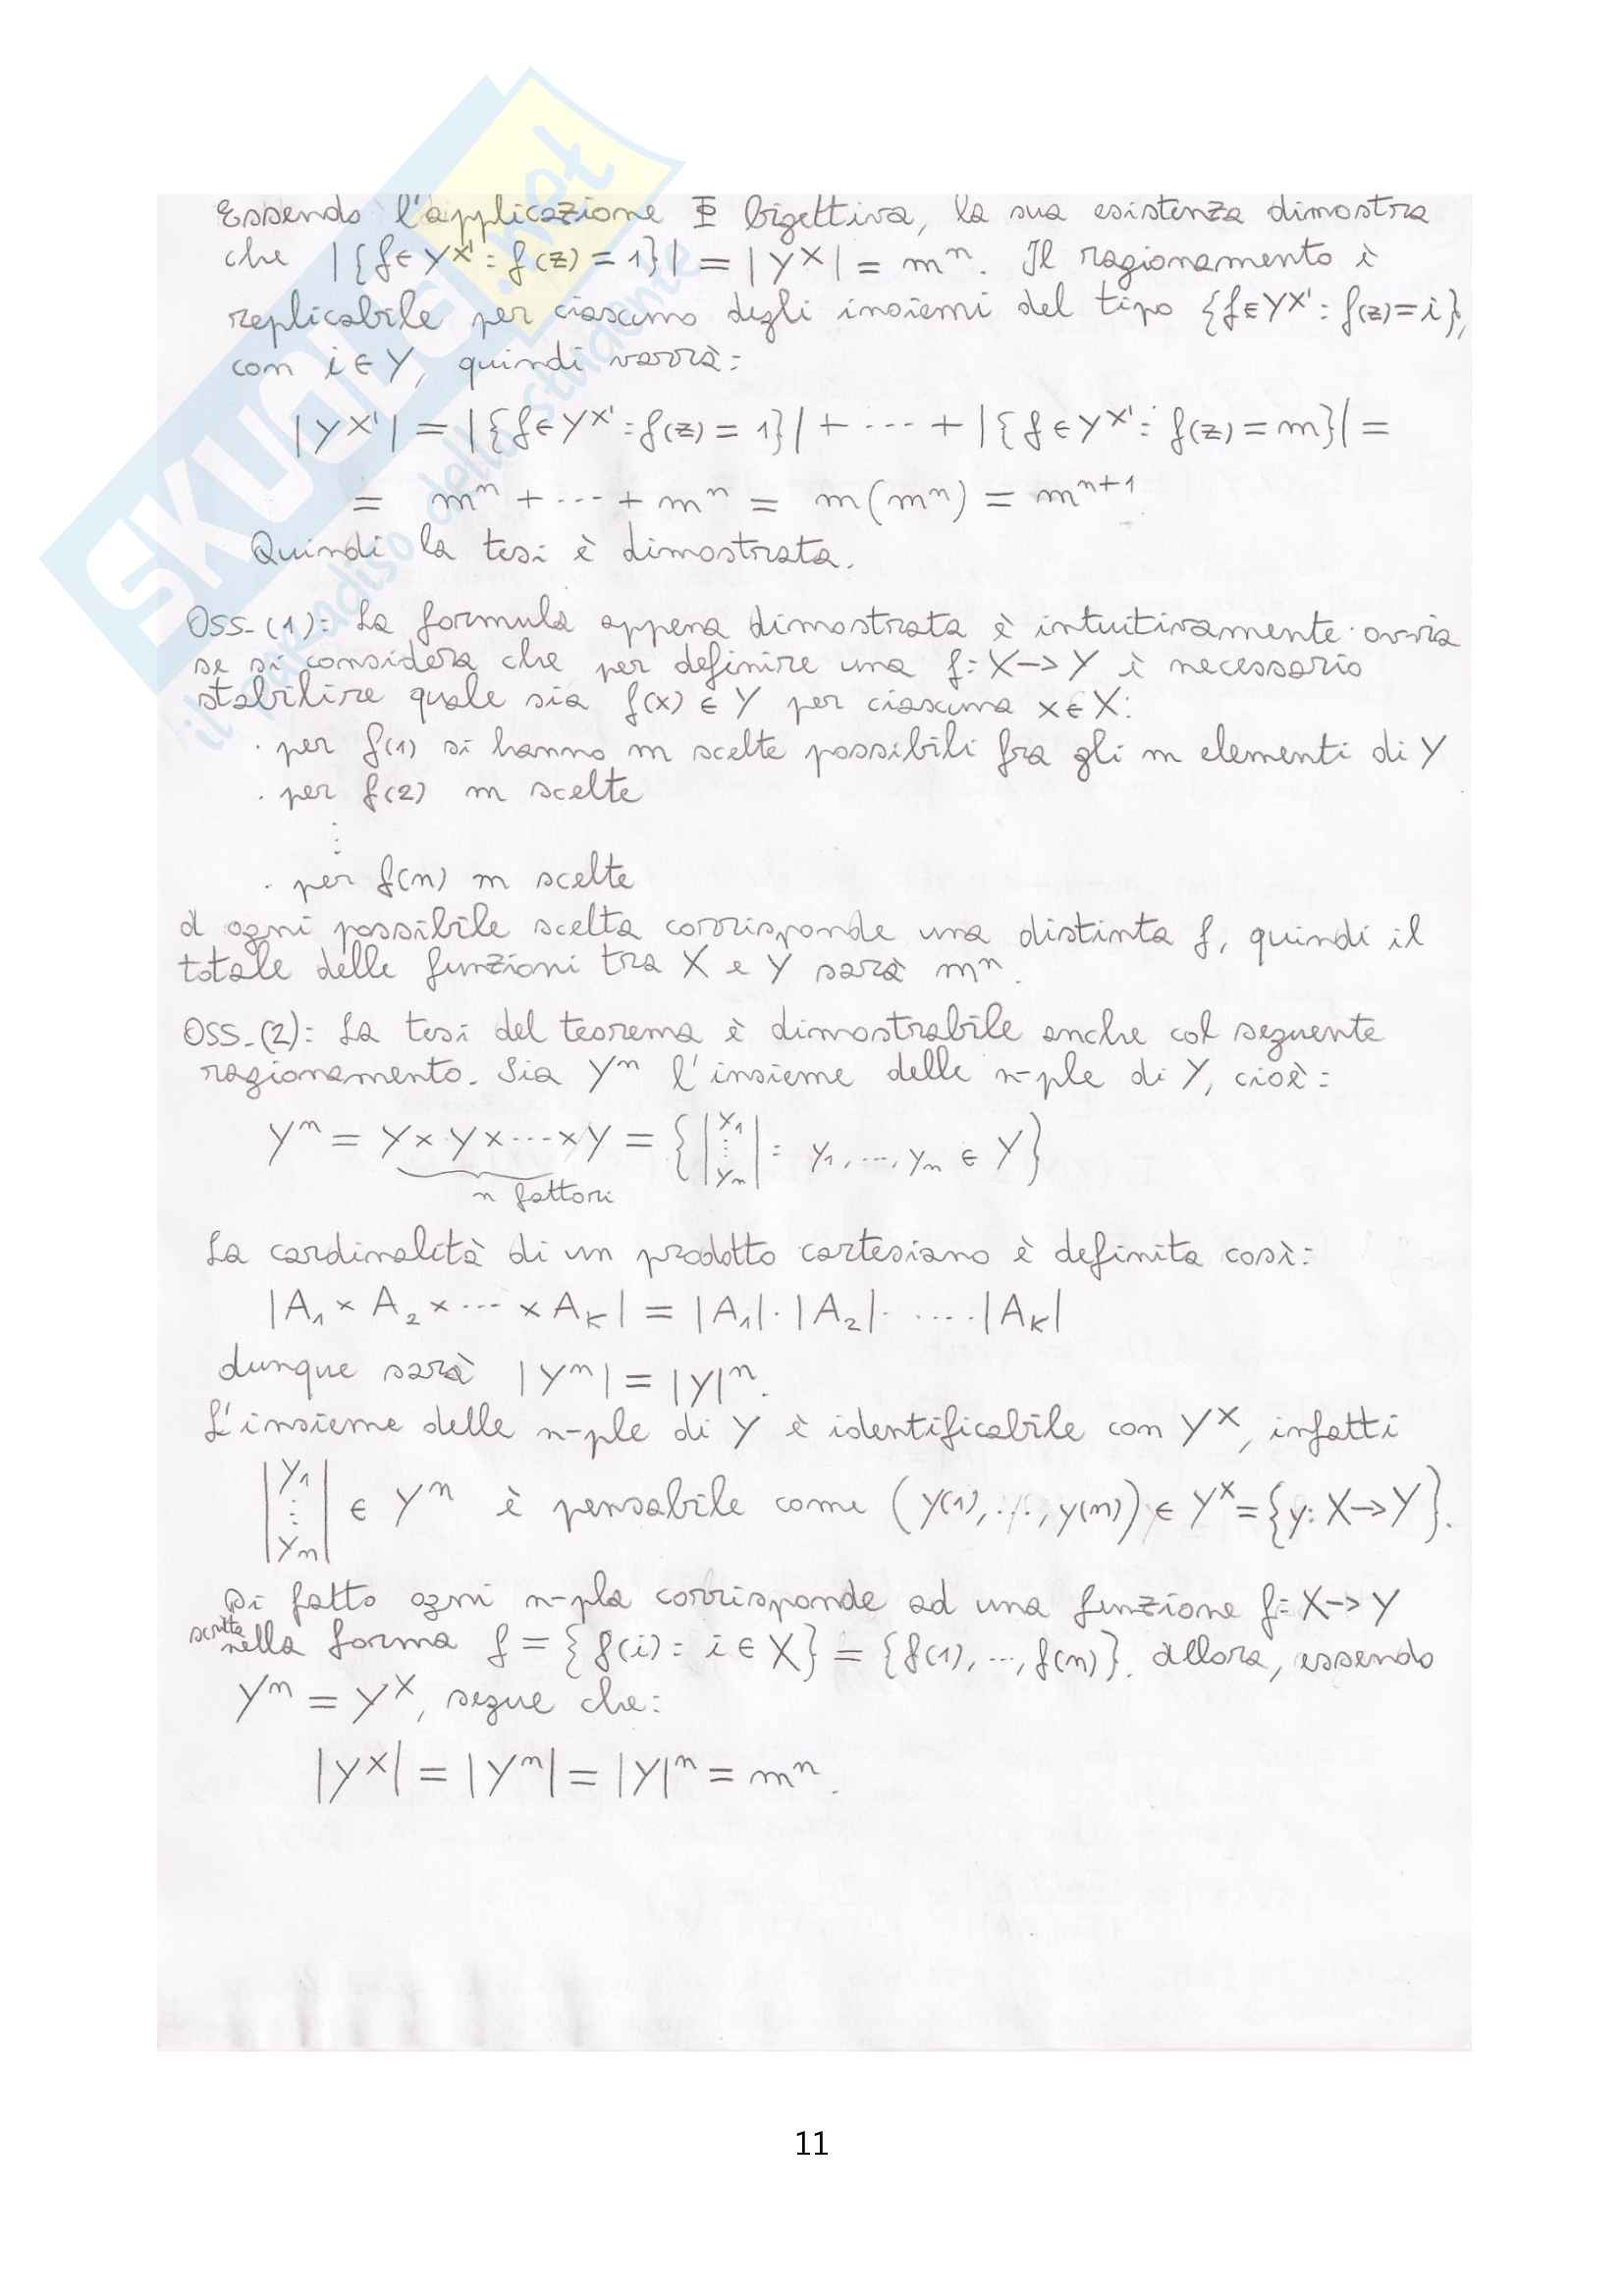 SKUOLA.net
il paradiso dello studente
Essendo l'applicazione Φ bigettiva, la sua esistenza dimostra
che |{f∈Y^X' : f(z) = 1}| = |Y^X| = m^n. Il ragionamento è
replicabile per ciascuno degli insiemi del tipo {f∈Y^X' : f(z)=i},
con i∈Y, quindi varrà:
|Y^X'| = |{f∈Y^X' : f(z) = 1}| + ··· + |{f∈Y^X' : f(z) = m}| =
= m^n + ··· + m^n = m(m^n) = m^(n+1)
Quindi la tesi è dimostrata.
Oss. (1): La formula appena dimostrata è intuitivamente ovvia
se si considera che per definire una f: X→Y è necessario
stabilire quale sia f(x) ∈ Y per ciascuna x∈X:
· per f(1) si hanno m scelte possibili fra gli m elementi di Y
· per f(2) m scelte
⋮
· per f(n) m scelte
A ogni possibile scelta corrisponde una distinta f, quindi il
totale delle funzioni tra X e Y sarà m^n.
Oss. (2): La tesi del teorema è dimostrabile anche col seguente
ragionamento. Sia Y^n l'insieme delle n-ple di Y, cioè:
Y^n = Y × Y × ··· × Y = {|y₁ ⋮ yₙ| : y₁, ..., yₙ ∈ Y}
n fattori
La cardinalità di un prodotto cartesiano è definita così:
|A₁ × A₂ × ··· × A_K| = |A₁| · |A₂| · .... |A_K|
dunque sarà |Y^n| = |Y|^n.
L'insieme delle n-ple di Y è identificabile con Y^X, infatti
|y₁ ⋮ yₙ| ∈ Y^n è pensabile come (y(1), ..., y(n)) ∈ Y^X = {y: X→Y}.
Di fatto ogni n-pla corrisponde ad una funzione f: X→Y
scritta nella forma f = {f(i) : i∈X} = {f(1), ..., f(n)}. Allora, essendo
Y^n = Y^X, segue che:
|Y^X| = |Y^n| = |Y|^n = m^n.
11